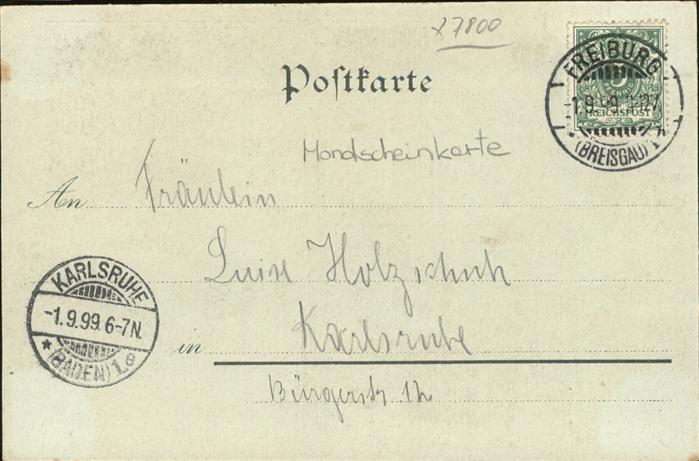 x7800
Postkarte
FREIBURG
1.9.99.
REICHSPOST
(BREISGAU)
Mondscheinkarte
An Fräulein
Luise Holzschuh
in Karlsruhe
Bürgerstr 12
KARLSRUHE
-1.9.99.6-7N.
* (BADEN) 1.a